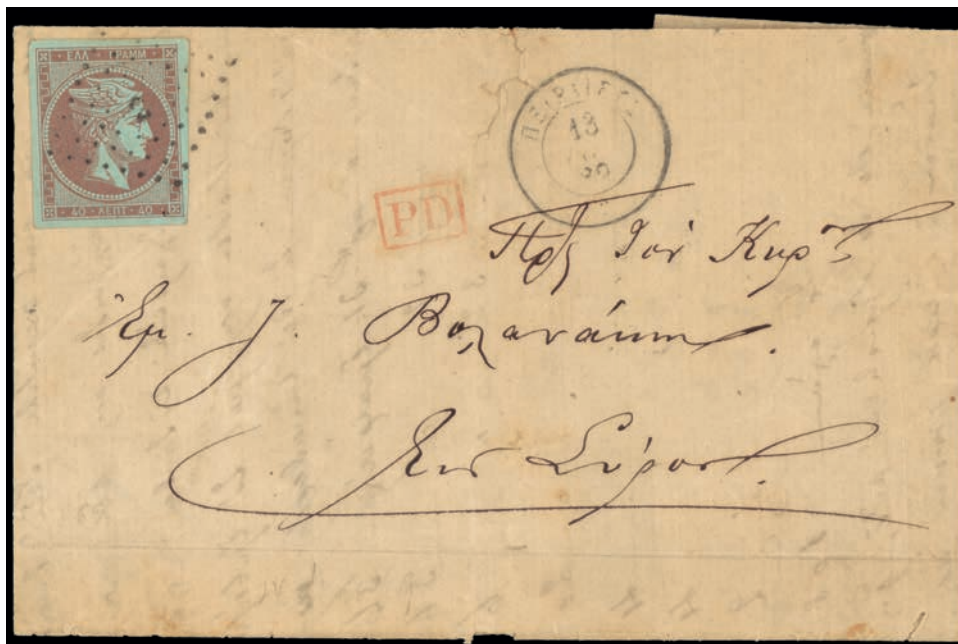 ΕΛΛ ΓΡΑΜΜ
40 ΛΕΠΤ 40
ΠΕΙΡΑΙΕΥΣ
13
PD
Πρς Τον Κυρ
Εμ. Ι. Βολανάκην.
Εις Σύρον.